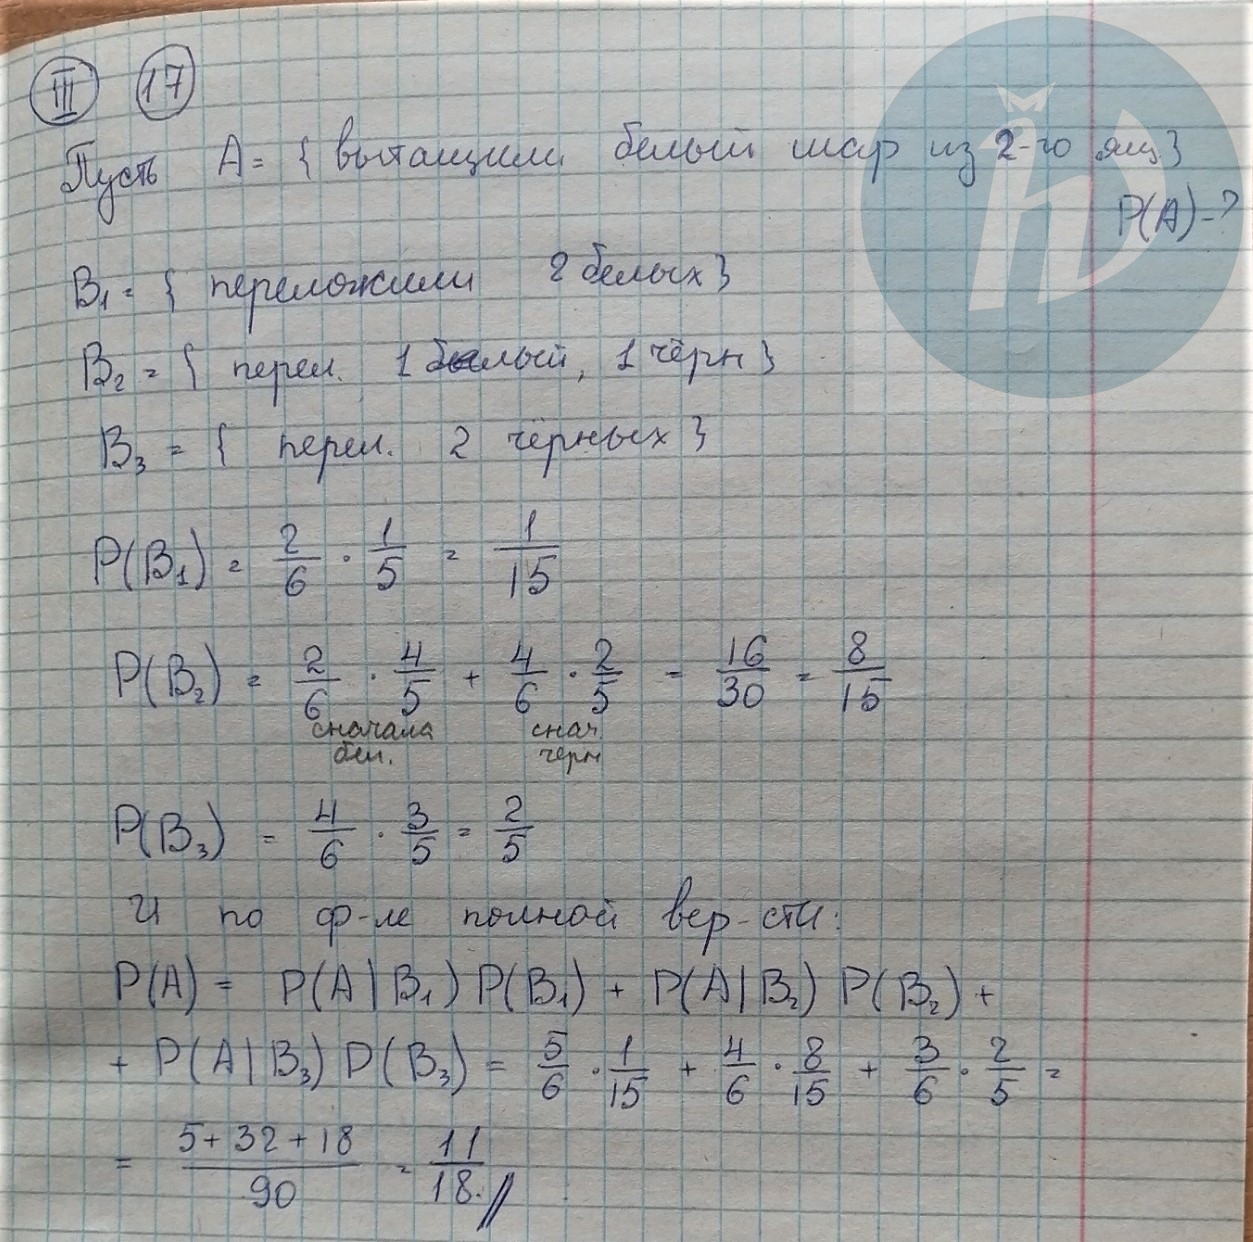 III 17
Пусть A = { вытащили белый шар из 2-го ящ}
P(A) - ?
B₁ = { переложили 2 белых}
B₂ = { перел. 1 белый, 1 чёрн}
B₃ = { перел. 2 чёрных}
P(B₁) = 2/6 · 1/5 = 1/15
P(B₂) = 2/6 · 4/5 + 4/6 · 2/5 = 16/30 = 8/15
сначала бел. снач. черн
P(B₃) = 4/6 · 3/5 = 2/5
И по ф-ле полной вер-сти:
P(A) = P(A|B₁) P(B₁) + P(A|B₂) P(B₂) +
+ P(A|B₃) P(B₃) = 5/6 · 1/15 + 4/6 · 8/15 + 3/6 · 2/5 =
= (5+32+18)/90 = 11/18. //